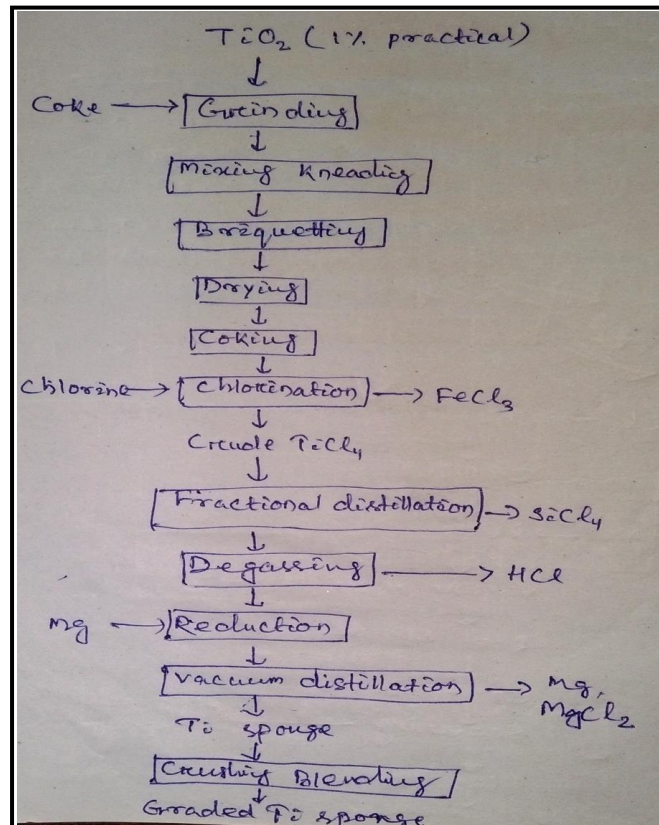 TiO₂ (1% practical)
↓
Coke → Grinding
↓
Mixing Kneadieg
↓
Briquetting
↓
Drying
↓
Coking
↓
Chlorine → Chlorination → FeCl₃
↓
Crude TiCl₄
↓
Fractional distillation → SiCl₄
↓
Degassing → HCl
↓
Mg → Reduction
↓
Vacuum distillation → Mg,
MgCl₂
↓
Ti sponge
↓
Crushing Blending
↓
Graded Ti sponge